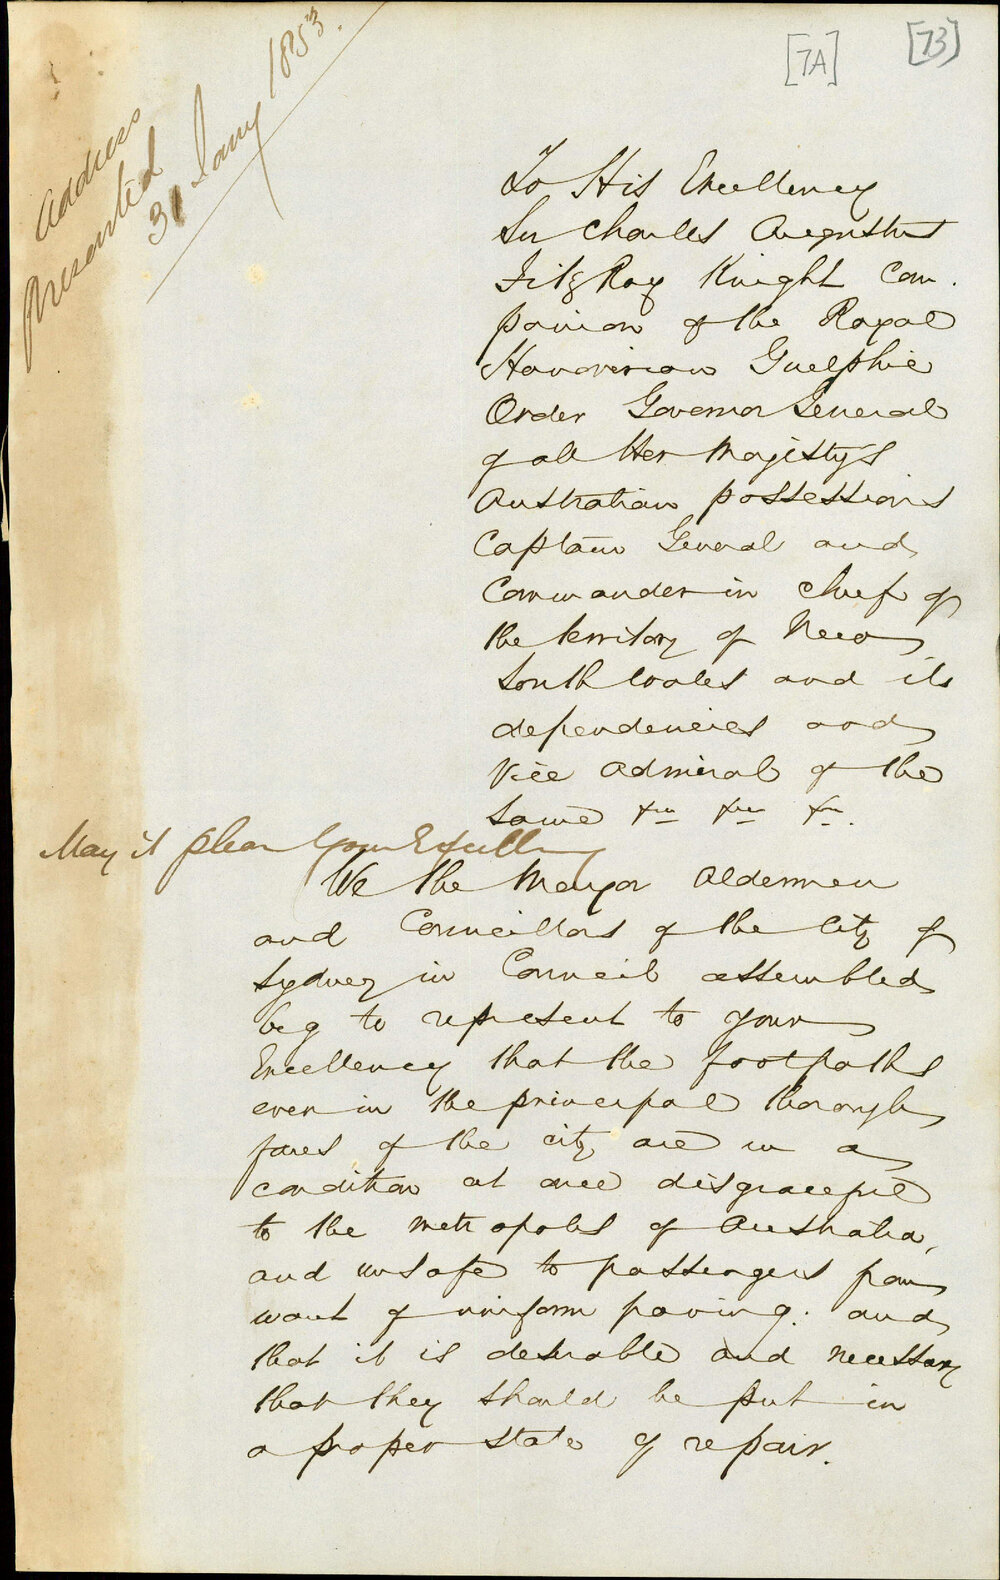 [7A]
[73]
Address
Presented
31 Jany 1853.
To His Excellency
Sir Charles Augustus
FitzRoy Knight Com.
panion of the Royal
Hanoverian Guelphic
Order Governor General
of all Her Majesty's
Australian possessions
Captain General and
Commander in chief of
the territory of New
South Wales and its
dependencies and
Vice Admiral of the
Same &c &c &c.
May it please Your Excellency
We the Mayor Aldermen
and Councillors of the City of
Sydney in Council assembled
beg to represent to your
Excellency that the footpaths
even in the principal thorough
fares of the city are in a
condition at once disgraceful
to the metropolis of Australia,
and unsafe to passengers from
want of uniform paving: and
that it is desirable and necessary
that they should be put in
a proper state of repair.